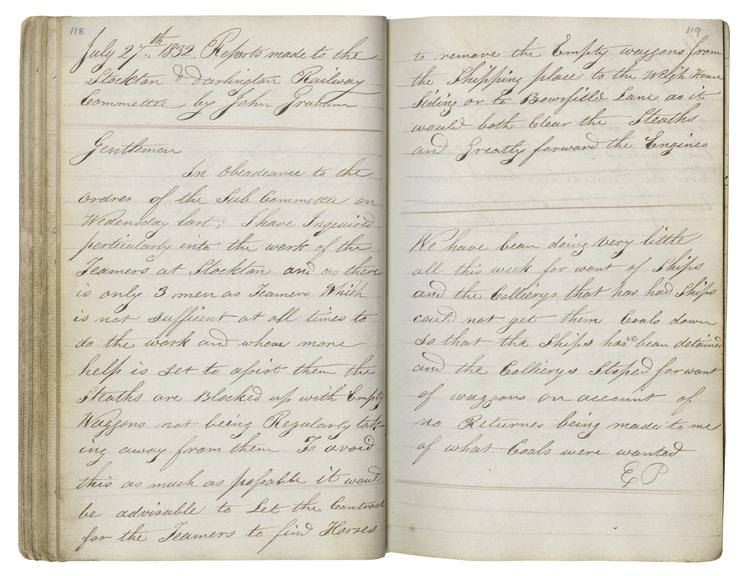 118
July 27th 1832 Reports made to the
Stockton & Darlington Railway
Committe by John Graham
Gentlemen
In obeadeance to the
ordres of the Sub Committe on
Wedensday last; I have Inquired
perticularly into the work of the
Teamers at Stockton and as there
is only 3 men as Teamers Which
is not sufficent at all times to
do the work and when more
help is set to assist them the
Steaths are Blocked up with Empty
Waggons not being Regularly tak-
ing away from them To avoid
this as much as possable it would
be advisable to Let the Contract
for the Teamers to find Horses
119
to remove the Empty waggons from
the Shipping place to the Weigh House
Siding or to Bowsfield Lane as it
would both Clear the Steaths
and Greatly forward the Engines
We have bean doing very little
all this week for want of Ships
and the Collierys that has had Ships
could not get them Coals down
So that the Ships have bean detained
and the Collierys Stoped for want
of waggons on account of
no Returnes being made to me
of what Coals were wanted
E P